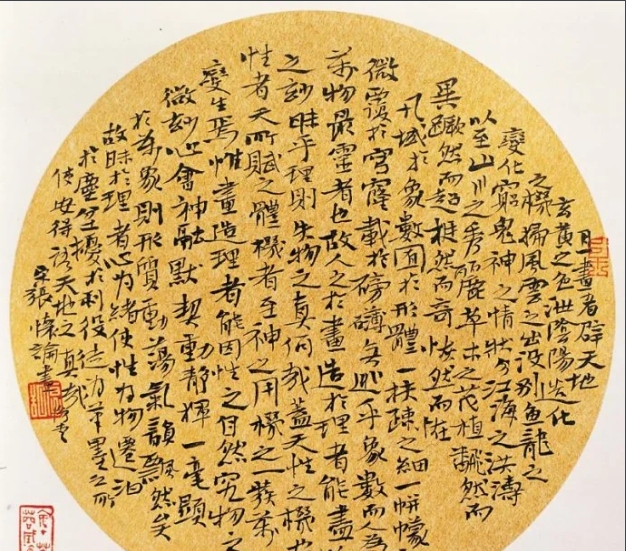 且畫者辟天地
玄黃之色泄陰陽造化
之機掃風雲之出沒別魚龍之
變化窮鬼神之情狀分江海之洪濤
以至山川之秀麗草木之茂植翻然而
異蹶然而超挺然而奇恢然而怪
凡域於象數囿於形體一扶疏之細一帡幪之
微覆於穹窿載於磅礴無逃乎象數而人為
萬物最靈者也故人之於畫造於理者能盡
之妙昧乎理則失物之真何哉蓋天性之機也
性者天所賦之體機者至神之用機之一發萬
變生焉惟畫造理者能因性之自然究物之
微妙心會神融默契動靜揮一毫顯
於萬象則形質動蕩氣韻飄然矣
故昧於理者心為緒使性為物遷汩
於塵坌擾於利役徒為筆墨之所
使安得語天地之真哉
宋張懷論畫